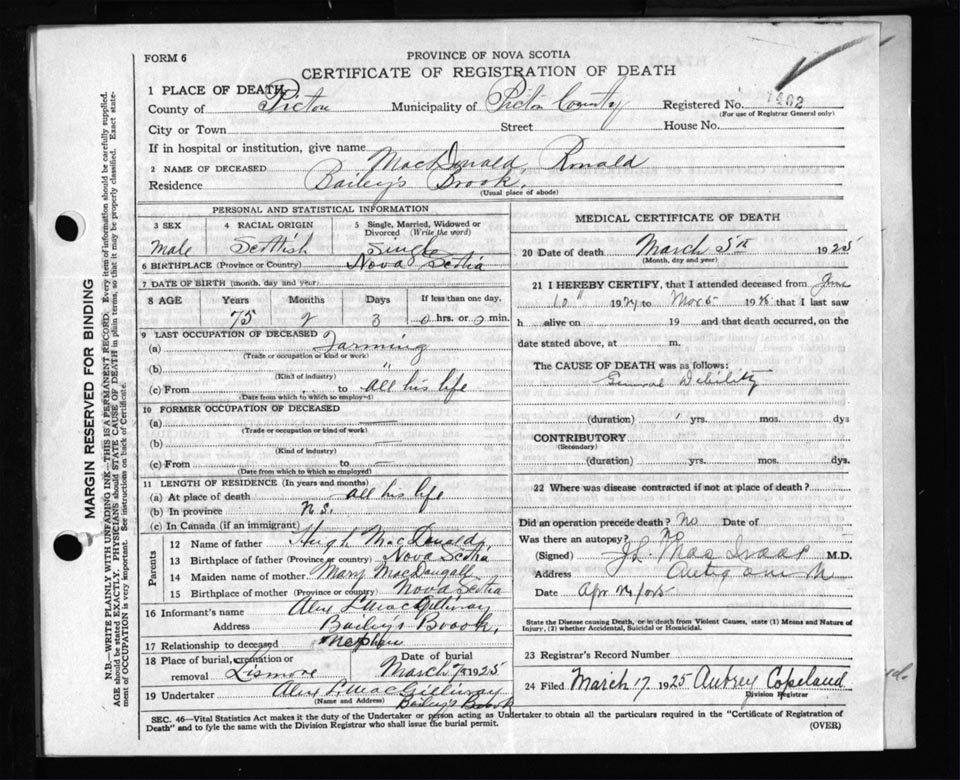 FORM 6
PROVINCE OF NOVA SCOTIA
CERTIFICATE OF REGISTRATION OF DEATH
1 PLACE OF DEATH
County of Pictou Municipality of Pictou County Registered No. 1402
(For use of Registrar General only)
City or Town Street House No.
If in hospital or institution, give name
2 NAME OF DECEASED MacDonald, Ronald
Residence Bailey's Brook.
(Usual place of abode)
PERSONAL AND STATISTICAL INFORMATION
3 SEX 4 RACIAL ORIGIN 5 Single, Married, Widowed or Divorced (Write the word)
Male Scottish Single
6 BIRTHPLACE (Province or Country) Nova Scotia
7 DATE OF BIRTH (month, day and year)
8 AGE Years Months Days If less than one day,
75 2 3 0 hrs. or 0 min.
9 LAST OCCUPATION OF DECEASED
(a) Farming
(Trade or occupation or kind or work)
(b) "
(Kind of industry)
(c) From to all his life
(Date from which to which so employed)
10 FORMER OCCUPATION OF DECEASED
(a) —
(Trade or occupation or kind of work)
(b) —
(Kind of industry)
(c) From to —
(Date from which to which so employed)
11 LENGTH OF RESIDENCE (In years and months)
(a) At place of death all his life
(b) In province N.S.
(c) In Canada (if an immigrant)
Parents
12 Name of father Hugh MacDonald,
13 Birthplace of father (Province or country) Nova Scotia
14 Maiden name of mother Mary MacDougall
15 Birthplace of mother (Province or country) Nova Scotia
16 Informant's name Alex L MacGillivray
Address Bailey's Brook,
17 Relationship to deceased Nephew
18 Place of burial, cremation or removal Lismore Date of burial March 7/5 1925
19 Undertaker Alex L. MacGillivray
(Name and Address) Bailey's Brook
MEDICAL CERTIFICATE OF DEATH
20 Date of death March 5th 1925
(Month, day and year)
21 I HEREBY CERTIFY, that I attended deceased from June
10" 1924 to 1925 that I last saw
h alive on 19 and that death occurred, on
date stated above, at m.
The CAUSE OF DEATH was as follows:
General Debility
(duration) 1 yrs. mos. dys
CONTRIBUTORY
(Secondary)
(duration) yrs. mos. dys.
22 Where was disease contracted if not at place of death?
Did an operation precede death? No Date of
Was there an autopsy? No
(Signed) J.L. MacIsaac M.D.
Address Antigonish
Date Apr
State the Disease causing Death, or in death from Violent Causes, state (1) Means and Nature of
Injury, (2) whether Accidental, Suicidal or Homicidal.
23 Registrar's Record Number
24 Filed March 17 1925 Aubrey Copeland
Division Registrar
SEC. 46—Vital Statistics Act makes it the duty of the Undertaker or person acting as Undertaker to obtain all the particulars required in the "Certificate of Registration of
Death" and to file the same with the Division Registrar who shall issue the burial permit.
(OVER)
MARGIN RESERVED FOR BINDING
N.B.—WRITE PLAINLY WITH UNFADING INK—THIS IS A PERMANENT RECORD. Every item of information should be carefully supplied.
AGE should be stated EXACTLY. PHYSICIANS should STATE CAUSE OF DEATH in plain terms, so that it may be properly classified. Exact statement
of OCCUPATION is very important. See instructions on back of Certificate.